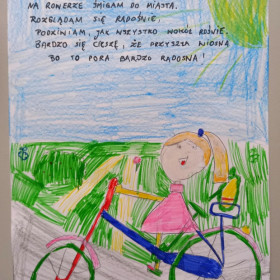 NA ROWERZE ŚMIGAM DO MIASTA,
ROZGLĄDAM SIĘ RADOŚNIE,
PODZIWIAM, JAK WSZYSTKO WOKÓŁ ROŚNIE.
BARDZO SIĘ CIESZĘ, ŻE PRZYSZŁA WIOSNA
BO TO PORA BARDZO RADOSNA!